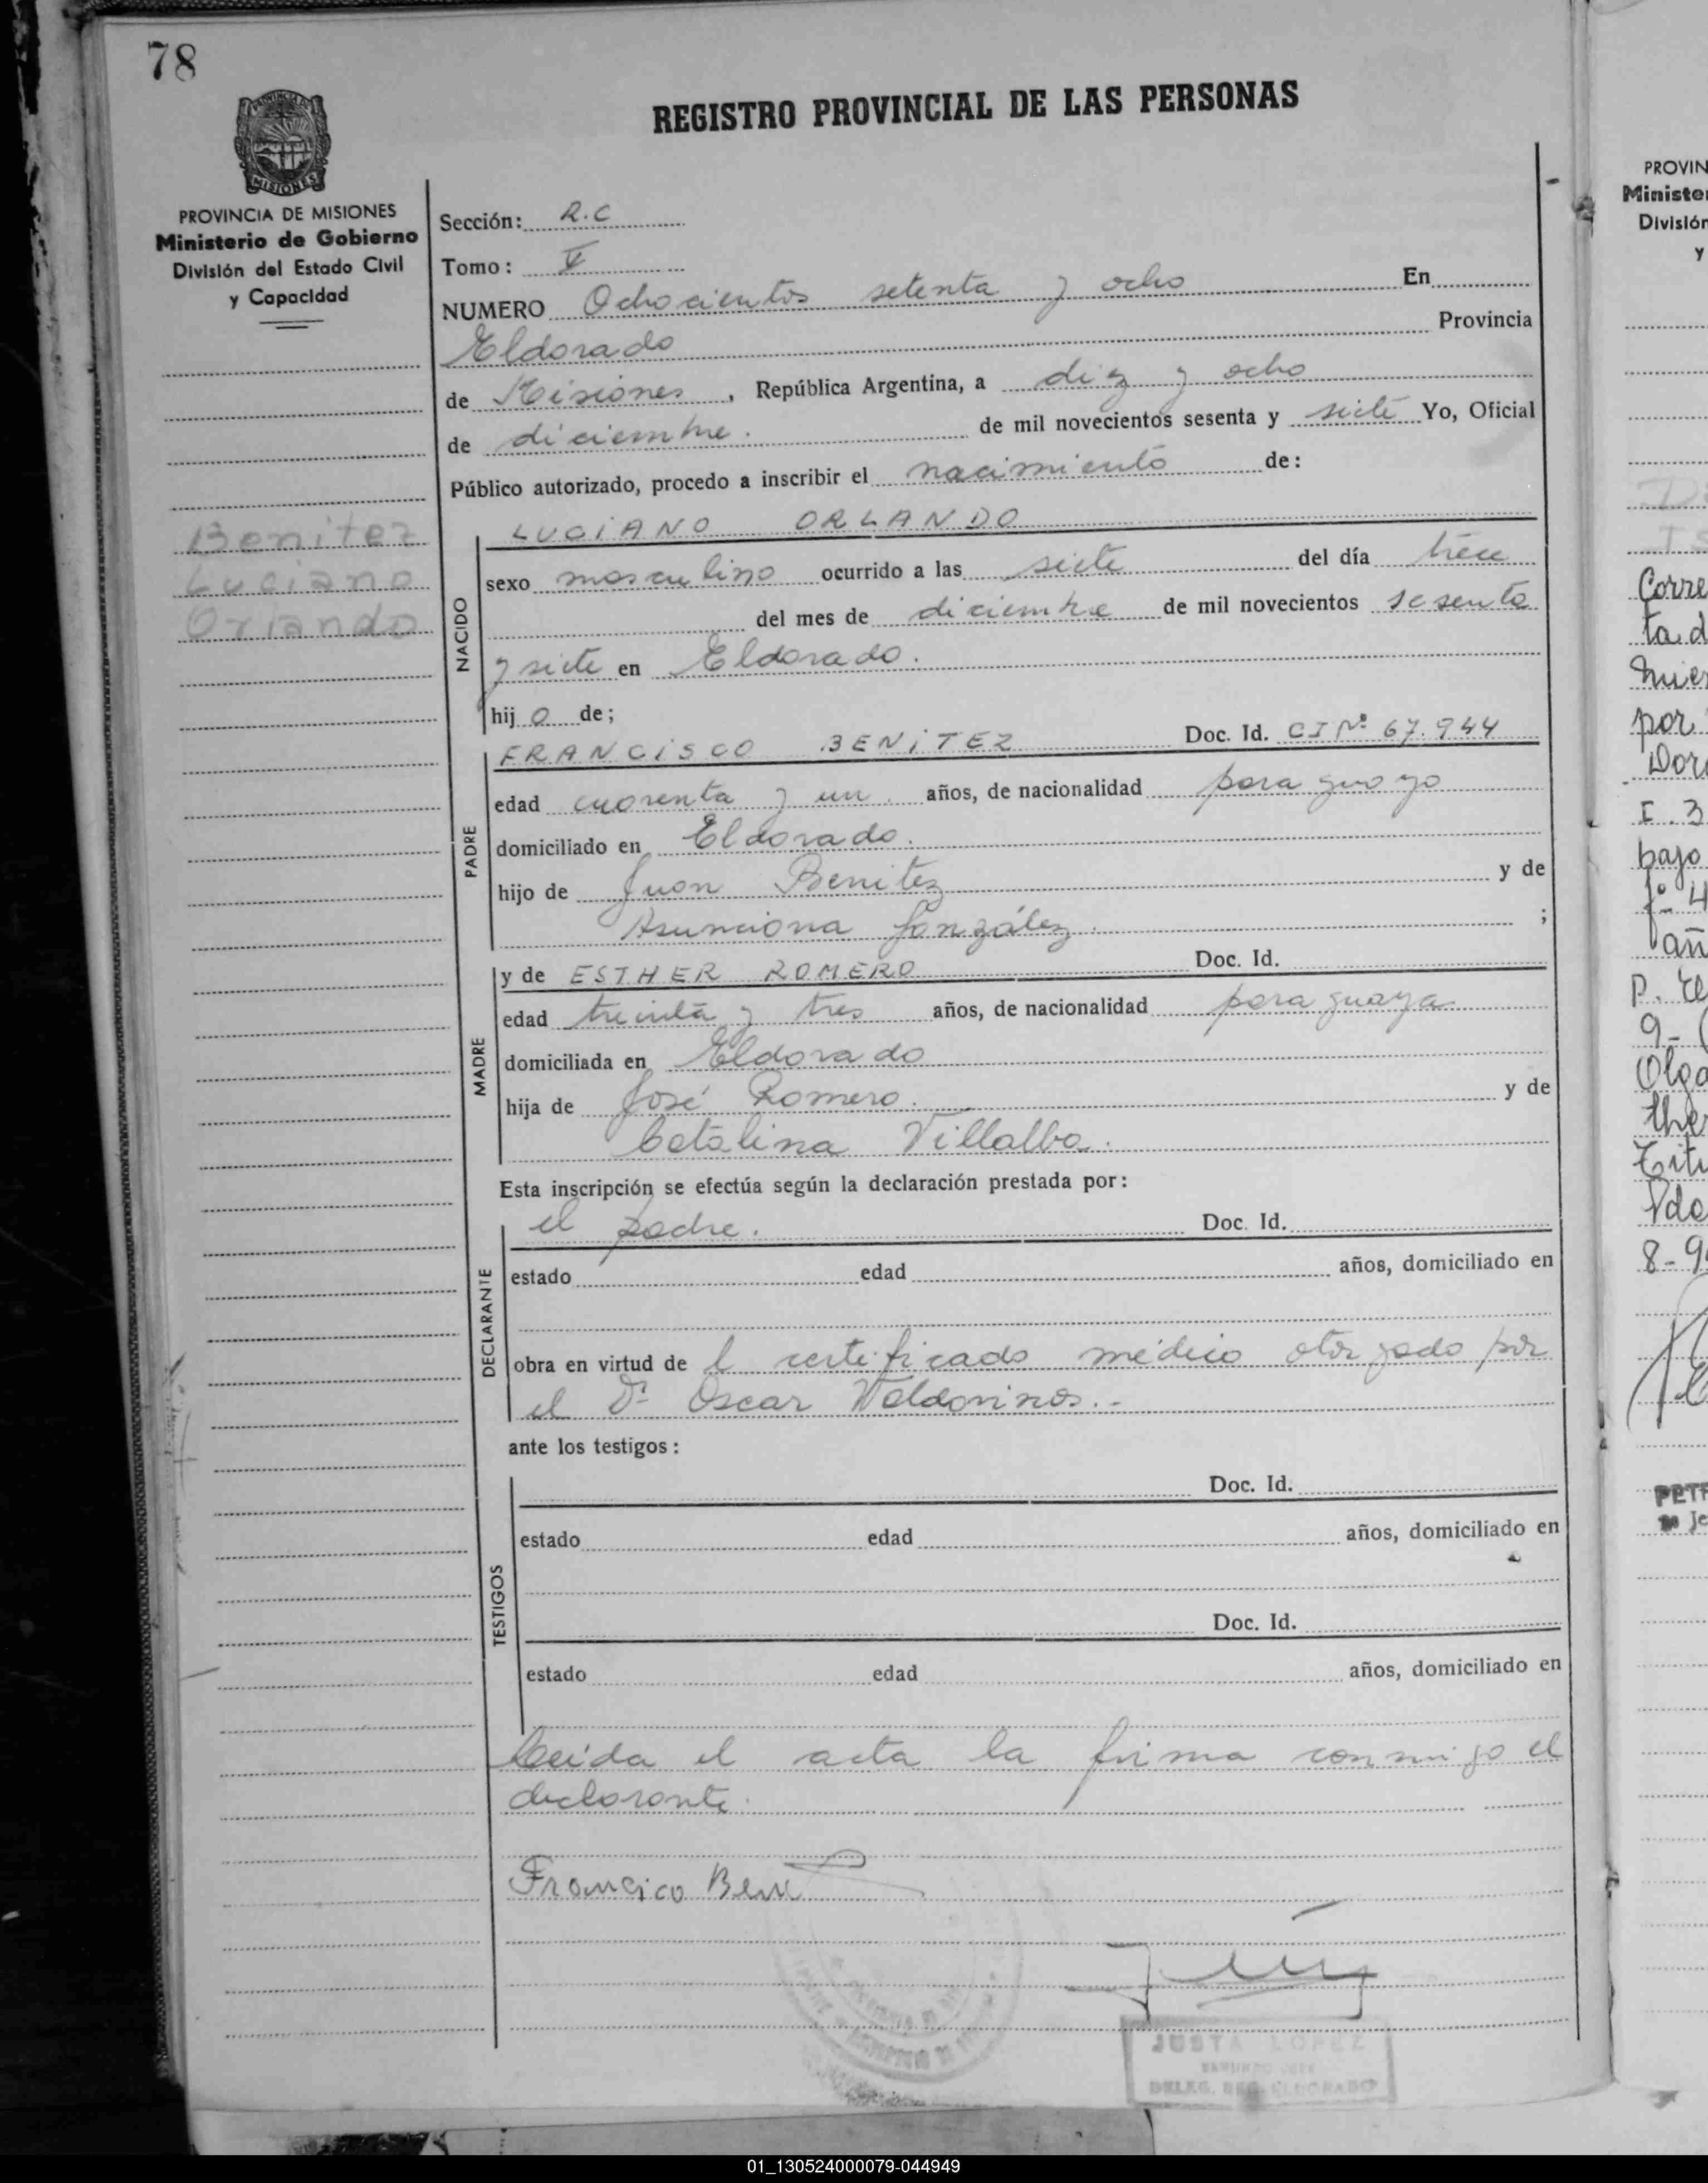 78
REGISTRO PROVINCIAL DE LAS PERSONAS
MISIONES
PROVINCIA DE MISIONES
Ministerio de Gobierno
División del Estado Civil
y Capacidad
Benitez
Luciano
Orlando
Sección: R.C
Tomo: V
NUMERO Ochocientos setenta y ocho En
Eldorado Provincia
de Misiones, República Argentina, a diez y ocho
de diciembre. de mil novecientos sesenta y siete Yo, Oficial
Público autorizado, procedo a inscribir el nacimiento de:
NACIDO
LUCIANO ORLANDO
sexo masculino ocurrido a las siete del día trece
del mes de diciembre de mil novecientos sesenta
y siete en Eldorado.
hijo de;
PADRE
FRANCISCO BENITEZ Doc. Id. CI Nº 67.944
edad cuarenta y un. años, de nacionalidad paraguayo
domiciliado en Eldorado.
hijo de Juan Benitez y de
Asunciona González. ;
MADRE
y de ESTHER ROMERO Doc. Id.
edad treinta y tres años, de nacionalidad paraguaya
domiciliada en Eldorado
hija de José Romero. y de
Catalina Villalba.
Esta inscripción se efectúa según la declaración prestada por:
DECLARANTE
el padre. Doc. Id.
estado edad años, domiciliado en
obra en virtud de l certificado médico otorgado por
el Dr Oscar Valdovinos.-
ante los testigos:
TESTIGOS
Doc. Id.
estado edad años, domiciliado en
Doc. Id.
estado edad años, domiciliado en
Leída el acta la firma conmigo el
declarante.
Francico Beni
JUSTA LOPEZ
DELEG. REG. ELDORADO
PROVIN
Ministe
División
y
Corre
ta d
por
I. 3
bajo
añ
8-9
01_130524000079-044949